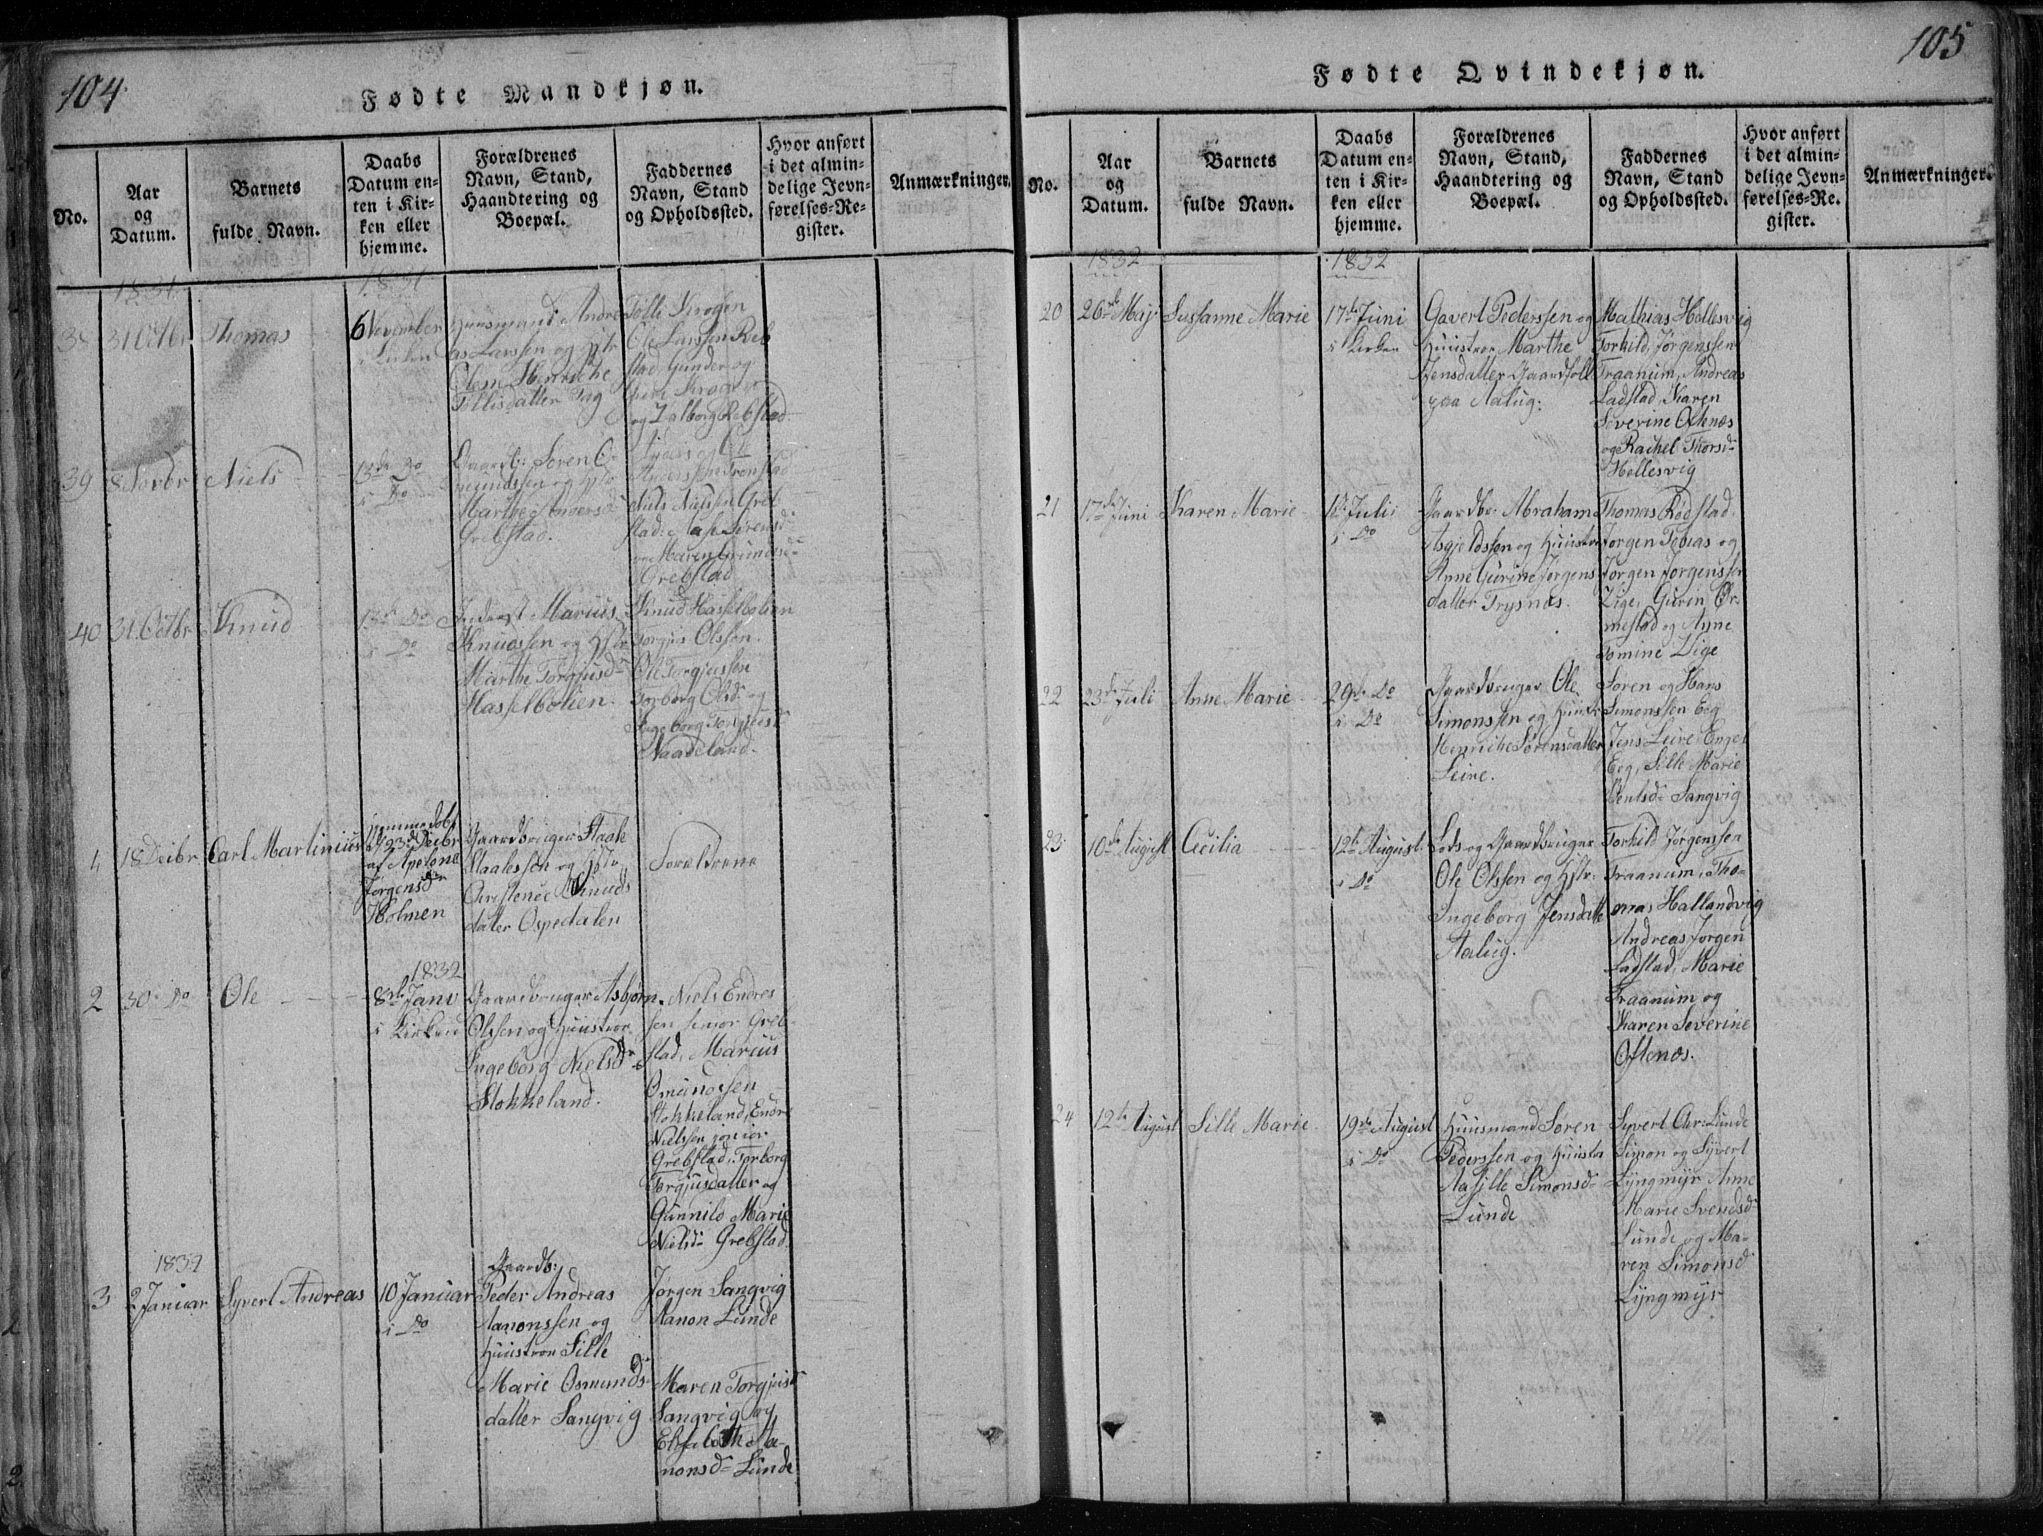 104
Fødte Mandkjøn.
No.
Aar
og
Datum.
Barnets
fulde Navn.
Daabs
Datum en-
ten i Kir-
ken eller
hjemme.
Forældrenes
Navn, Stand,
Haandtering og
Boepæl.
Faddernes
Navn, Stand
og Opholdssted.
Hvor anført
i det almin-
delige Jevn-
førelses-Re-
gister.
Anmærkninger.
1831
1831
38
31 Octbr
Thomas
6 November
i Kirken
Huusmand Andre
as Larssen og Hstr
Olene Henriche
Tollisdatter Tag
Tolle Krogen
Ole Larssen Reb
stad Gunder og
Krogen
og Valborg Rebstad
39
8 Novbr
Niels
13de Do
i Do
Gaardb: Søren O-
mundssen og Hstr
Marthe Anders
Grebstad.
Anders og Ole
Anderssen Tronstad
Niels Nielsen Greb
stad: Aase Sørensd
og Maren Gundersd
Grebstad
40
31 Octbr
Knud
13de Do
i Do
Inderst Marius
Knudssen og Hstr
Marthe Torgjusd
Hasselbolien.
Knud Hasselbolien
Torgius Olssen.
Ole Torgjussen
Torborg Olsd og
Ingeborg Torgjusd
Naadeland.
18 Decbr
Carl Martinius
hjemmedobt
23de Decbr
af Apelone
Jørgensd
Holmen
Gaardbruger Staale
Staalessen og Hstr
Christence Knuds
datter Ospedalen
Forældrene
1832
2
30 Do
Ole
8de Janv
i Kirken
Gaardbruger Asbjørn
Olssen og Huustroe
Ingeborg Nielsdr
Stokkeland.
Niels Endres
sen senior Greb
stad, Marcus
Omundssen
Stokkeland, Endre
Nielssen junior
Grebstad, Torborg
Torgjusdatter og
Gunnild Marie
Nielsd Grebstad.
1832
3
2 Januar
Syvert Andreas
10 Januar
i Do
Gaardb:
Peder Andreas
Aanonssen og
Huustroe Sille
Marie Osmunds
datter Sangvig
Jørgen Sangvig
Aanon Lunde
Maren Torgjusd
Sangvig og
Elisabeth Aa-
nonsd Lunde
105
Fødte Qvindekjøn.
No.
Aar
og
Datum.
Barnets
fulde Navn.
Daabs
Datum en-
ten i Kir-
ken eller
hjemme.
Forældrenes
Navn, Stand,
Haandtering og
Boepæl.
Faddernes
Navn, Stand
og Opholdssted.
Hvor anført
i det almin-
delige Jevn-
førelses-Re-
gister.
Anmærkninger.
1832
1832
20
26de Maj
Susanne Marie
17de Juni
i Kirken
Gavert Pederssen og
Huustroe Marthe
Jensdatter Gaardfolk
paa Aalug.
Mathias Hellesvig
Torkild Jørgenssen
Traanum, Andreas
Ladstad, Karen
Severine Oftenæs
og Rachel Thorsd
Hellesvig
21
17de Juni
Karen Marie
1ste Juli
i Do
Gaardbr: Abraham
Asgjeldssen og Huustro
Anne Gurine Jørgens
datter Trysnæs.
Thomas Rødstad
Jørgen Tobias og
Jørgen Jørgenssen
Lige, Gurin Or-
mestad og Anne
Tomine Lige
22
23de Juli
Anne Marie
29de Do
i Do
Gaardbruger Ole
Simonssen og Huustr
Henriche Sørensdatter
Leire.
Søren og Hans
Simonssen Eeg
Jens Leire, Engel
Eeg, Sille Marie
Bentsd Sangvig
23
10de August
Cecilia
12te August
i Do
Lods og Gaardbruger
Ole Olssen og Hstr:
Ingeborg Jensdatter
Aalug.
Torkild Jørgenssen
Traanum, Tho-
mas Hallandvig
Andreas Jørgen
Ladstad, Marie
Traanum og
Karen Severine
Oftenæs.
24
12te August
Sille Marie
19de August
i Do
Huusmand Søren
Pederssen og Huustro
Aasille Simonsd
Lunde
Syvert Chr: Lunde
Simon og Syvert
Lyngmyr Anne
Marie Svendsd
Lunde og Ma-
ren Simonsd
Lyngmyr